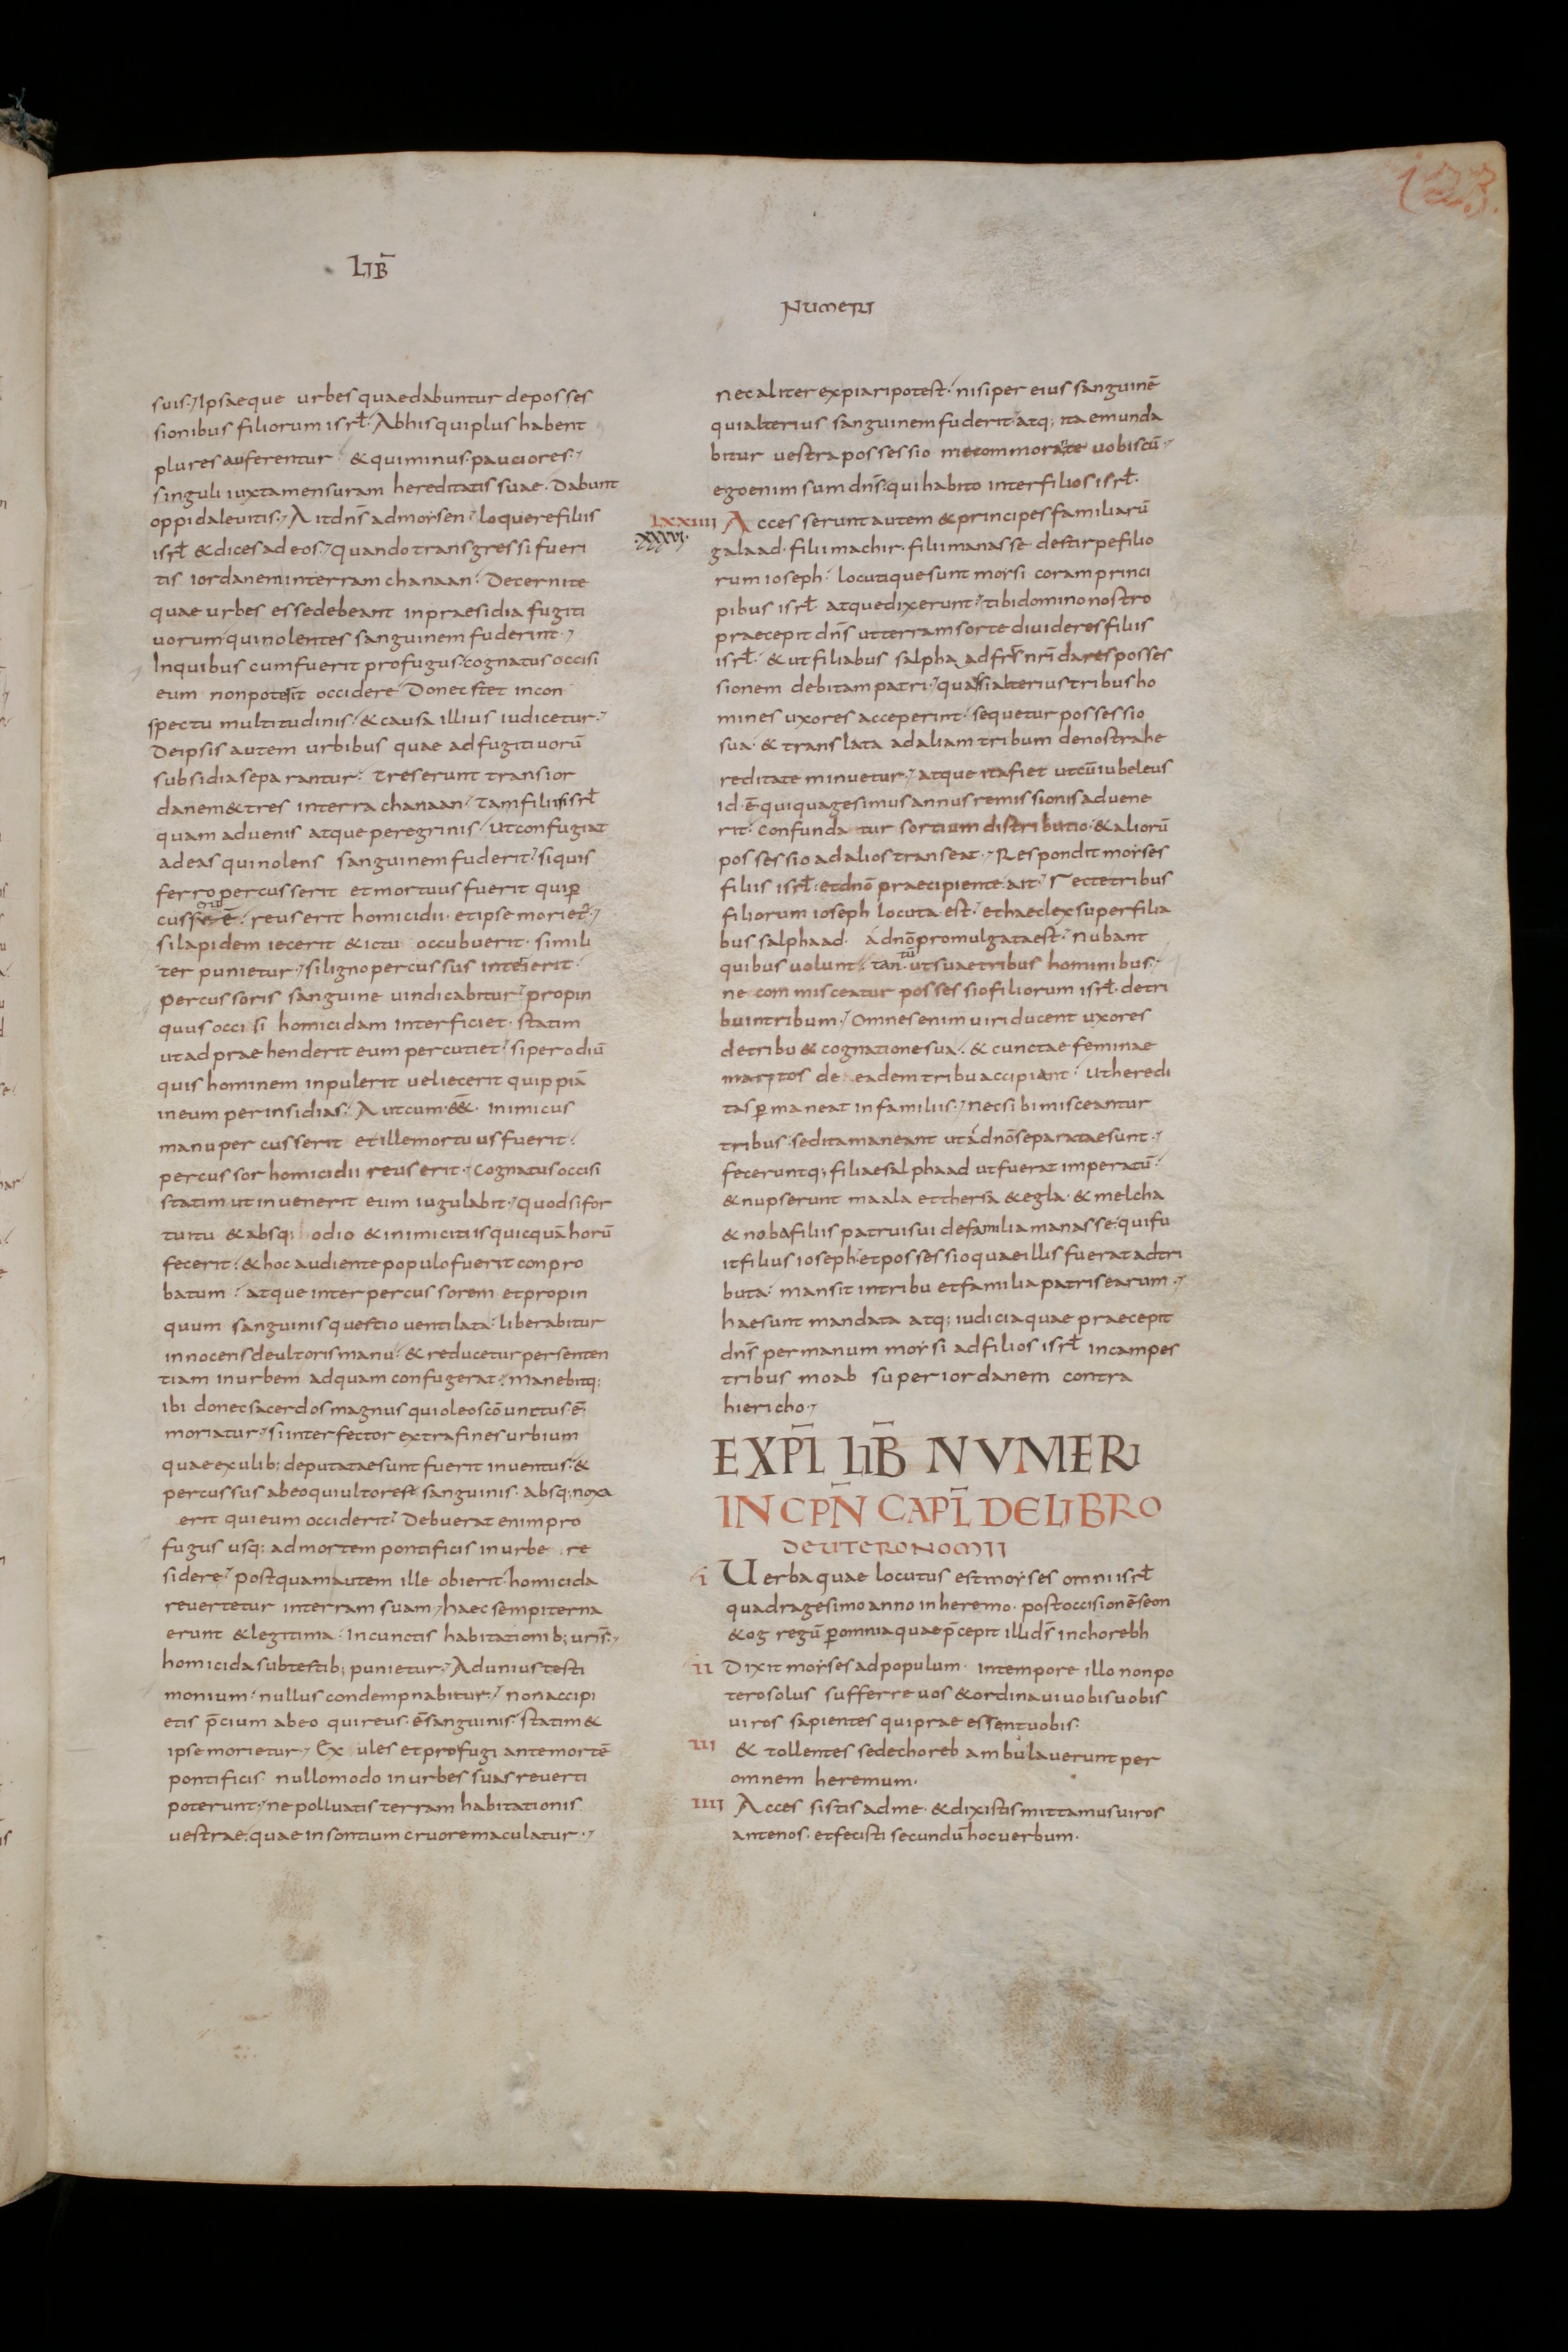 123.
LIB̄
NUMERI
suis· Ipsaeque urbes quae dabuntur de posses
sionibus filiorum isrł· Ab his qui plus habent
plures auferentur· & qui minus· pauciores·
singuli iuxta mensuram hereditatis suae· Dabunt
oppida leuitis· Ait dns̄ ad moysen· loquere filiis
isrł & dices ad eos· quando transgressi fueri
tis iordanem in terram chanaan· Decernite
quae urbes esse debeant in praesidia fugiti
uorum qui nolentes sanguinem fuderint·
In quibus cum fuerit profugus· cognatus occisi
eum non poterit occidere· Donec stet in con
spectu multitudinis· & causa illius iudicetur·
De ipsis autem urbibus quae ad fugitiuorū
subsidia separantur· tres erunt trans ior
danem & tres in terra chanaan· Tam filiis isrł
quam aduenis atque peregrinis· Ut confugiat
ad eas qui nolens sanguinem fuderit· si quis
ferro percusserit et mortuus fuerit qui ꝑ
cuss ē· reus erit homicidii· et ipse moriet·
si lapidem iecerit & ictu occubuerit· simili
ter punietur· si ligno percussus interierit·
percussoris sanguine uindicabitur· propin
quus occisi homicidam interficiet· statim
ut adpraehenderit eum percutiet· si per odiū
quis hominem inpulerit uel iecerit quippiā
in eum per insidias· Aut cum ēēt inimicus
manu percusserit et ille mortuus fuerit·
percussor homicidii reus erit· Cognatus occisi
statim ut inuenerit eum iugulabit· Quod si for
tuitu & absq; odio & inimicitiis quicquā horū
fecerit· & hoc audiente populo fuerit conpro
batum· atque inter percussorem et propin
quum sanguinis questio uentilata· liberabitur
innocens de ultoris manu· & reducetur per senten
tiam in urbem ad quam confugerat· manebitq;
ibi donec sacerdos magnus qui oleo scō unctus ē
moriatur· si interfector extra fines urbium
quae exulib; deputatae sunt fuerit inuentus· &
percussus ab eo qui ultor est sanguinis· absq; noxa
erit qui eum occiderit· Debuerat enim pro
fugus usq; ad mortem pontificis in urbe re
sidere· postquam autem ille obierit· homicida
reuertetur in terram suam· haec sempiterna
erunt & legitima· In cunctis habitationib; uris̄·
homicida sub testib; punietur· Ad unius testi
monium· nullus condempnabitur· non accipi
etis p̄cium ab eo qui reus ē sanguinis· statim &
ipse morietur· Exules et profugi ante mortē
pontificis· nullo modo in urbes suas reuerti
poterunt· ne polluatis terram habitationis
uestrae· quae insontium cruore maculatur·
nec aliter expiari potest· nisi per eius sanguinē
qui alterius sanguinem fuderit· atq; ita emunda
bitur uestra possessio me commorante uobiscū·
ego enim sum dns̄· qui habito inter filios isrł·
LXXIIII Accesserunt autem & principes familiarū
XXXVI·
galaad· filii machir· filii manasse· de stirpe filio
rum ioseph· locutique sunt moysi coram princi
pibus isrł· atque dixerunt· tibi domino nostro
praecepit dns̄ ut terram sorte diuideres filiis
isrł· & ut filiabus salphaad frīs nrī dares posses
sionem debitam patri· quas si alterius tribus ho
mines uxores acceperint· sequetur possessio
sua· & translata ad aliam tribum de nostra he
reditate minuetur· atque ita fiet ut cū iubeleus
id· ē· quiquagesimus annus remissionis aduene
rit· Confundatur sortium distributio· & aliorū
possessio ad alios transeat· Respondit moyses
filiis isrł· et dnō praecipiente ait· Recte tribus
filiorum ioseph locuta est· et haec lex super filia
bus salphaad· a dnō promulgata est· Nubant
quibus uolunt· tantū· ut suae tribus hominibus·
ne commisceatur possessio filiorum isrł· de tri
bu in tribum· Omnes enim uiri ducent uxores
de tribu & cognatione sua· & cunctae feminae
maritos de eadem tribu accipiant· Ut heredi
tas ꝑmaneat in familiis· nec sibi misceantur
tribus· sed ita maneant ut a dnō separatae sunt·
feceruntq; filiae salphaad ut fuerat imperatū·
& nupserunt maala et thersa & egla· & melcha
& noba filiis patrui sui de familia manasse· qui fu
it filius ioseph· et possessio quae illis fuerat adtri
buta· mansit in tribu et familia patris earum·
haec sunt mandata atq; iudicia quae praecepit
dns̄ per manum moysi ad filios isrł in campes
tribus moab super iordanem contra
hiericho·
EXPL̄ LIB̄ NVMERI
INCPN̄ CAPL̄ DE LIBRO
DEUTERONOMII
I Uerba quae locutus est moyses omni isrł
quadragesimo anno in heremo· post occisionē seon
& og regū ꝑ omnia quae p̄cepit illi ds̄ in chorebh
II Dixit moyses ad populum· in tempore illo non po
tero solus sufferre uos & ordinaui uobis uobis
uiros sapientes qui praeessent uobis·
III & tollentes se de choreb ambulauerunt per
omnem heremum·
IIII Accessistis ad me· & dixistis mittamus uiros
ante nos· et fecisti secundū hoc uerbum·